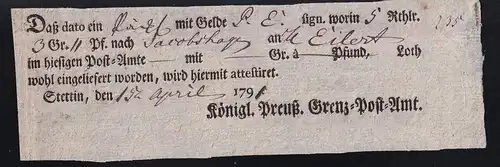 Daß dato ein Päckl mit Gelde P. E. sign. worin 5 Rthlr. 235
3 Gr. 11 Pf. nach Jacobshagen an Eilert
im hiesigen Post-Amte — mit — Gr. à — Pfund, Loth
wohl eingeliefert worden, wird hiermit attestiret.
Stettin, den 15n April 1791
Königl. Preuß. Grenz-Post-Amt.